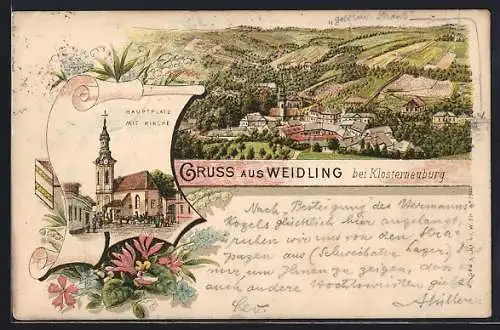 HAUPTPLATZ
MIT KIRCHE
GRUSS AUS WEIDLING bei Klosterneuburg
Nach Besteigung des Hermanns
Kogels glücklich hier angelangt,
ruhen wir uns von den Stra-
pazen aus (Schwechater Lager) das
nur, um Ihnen zu zeigen, dass es
auch andere Hochtouristen gibt